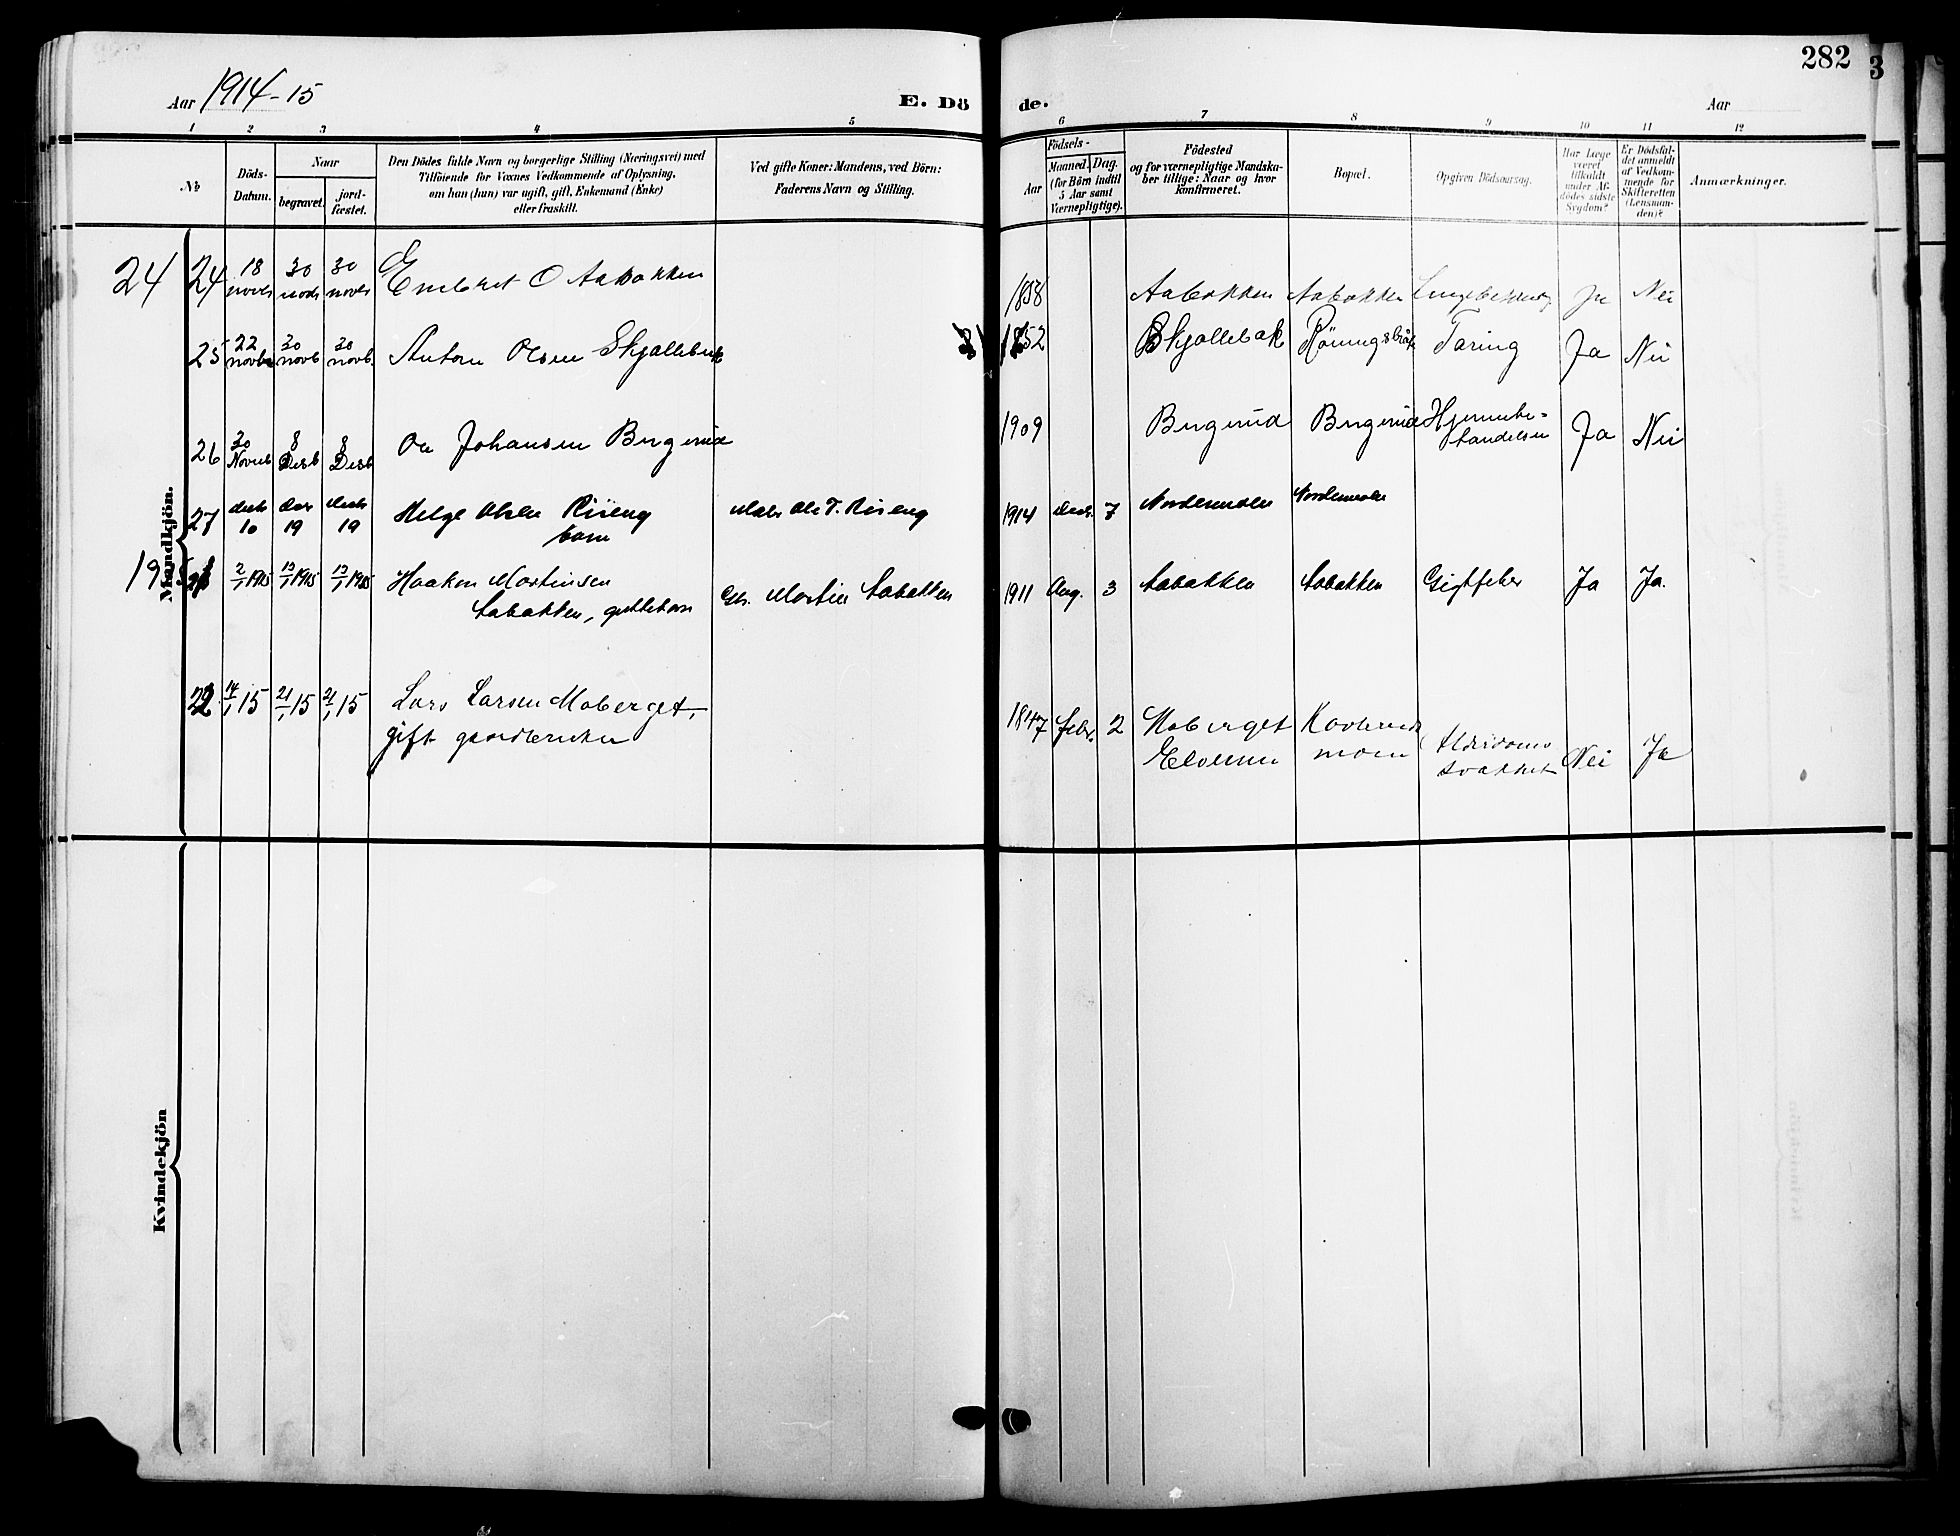 282
3
Aar 1914-15
E. Dö de.
Aar
1 2 3 4 5 6 7 8 9 10 11 12
No
Döds-Datum.
Naar
begravet.
jord-fæstet.
Den Dödes fulde Navn og borgerlige Stilling (Næringsvei) med
Tilföiende for Voxnes Vedkommende af Oplysning,
om han (hun) var ugift, gift, Enkemand (Enke)
eller fraskilt.
Ved gifte Koner: Mandens, ved Börn:
Faderens Navn og Stilling.
Födsels-
Aar
Maaned. Dag.
(for Börn indtil
5 Aar samt
Værnepligtige).
Födested
og for værnepligtige Mandska-
ber tillige: Naar og hvor
konfirmeret.
Bopæl.
Opgiven Dödsaarsag.
Har Læge
været
tilkaldt
under Af-
dödes sidste
Sygdom?
Er Dödsfal-
det anmeldt
af Vedkom-
mende for
Skifteretten
(Lensman-
den)?
Anmærkninger.
Mandkjön.
24 24 18 novbr 30 30 novbr Embret O Aabakken 1858 Aabakken Aabakken Ja Nei
25 22 novbr 30 novb 30 novb. Anton Olsen Skjallebæk 1852 Skjallebæk Taring Ja Nei
26 30 Novb 8 Desb 8 Desb Ole Johansen Bergerud 1909 Bergerud Bergerud Hjernebe-
tændelse Ja Nei
27 10 19 19 Helge Olsen Riseng
barn Ole T. Riseng 1914 7
1 2/1 1915 13/1 1915 13/1 1915 Haakon Martinsen
Aabakken, guttebarn Martin Aabakken 1911 Aug. 3 Aabakken Aabakken Gigtfeber Ja Ja.
2 14/1 15 21/1 15 21/1 15 Lars Larsen Moberget,
gift gaardbruker 1847 febr. 2 Moberget
Elverum
moen Alderdoms
svakhet Nei Ja
Kvindekjön